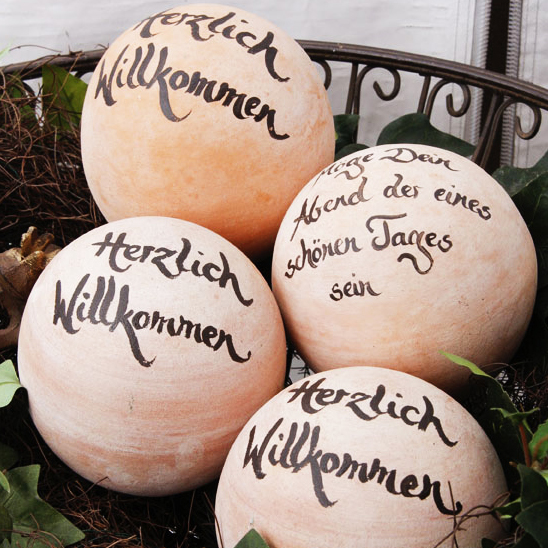 Herzlich
Willkommen
Möge Dein
Abend der eines
schönen Tages
sein
Herzlich
Willkommen
Herzlich
Willkommen